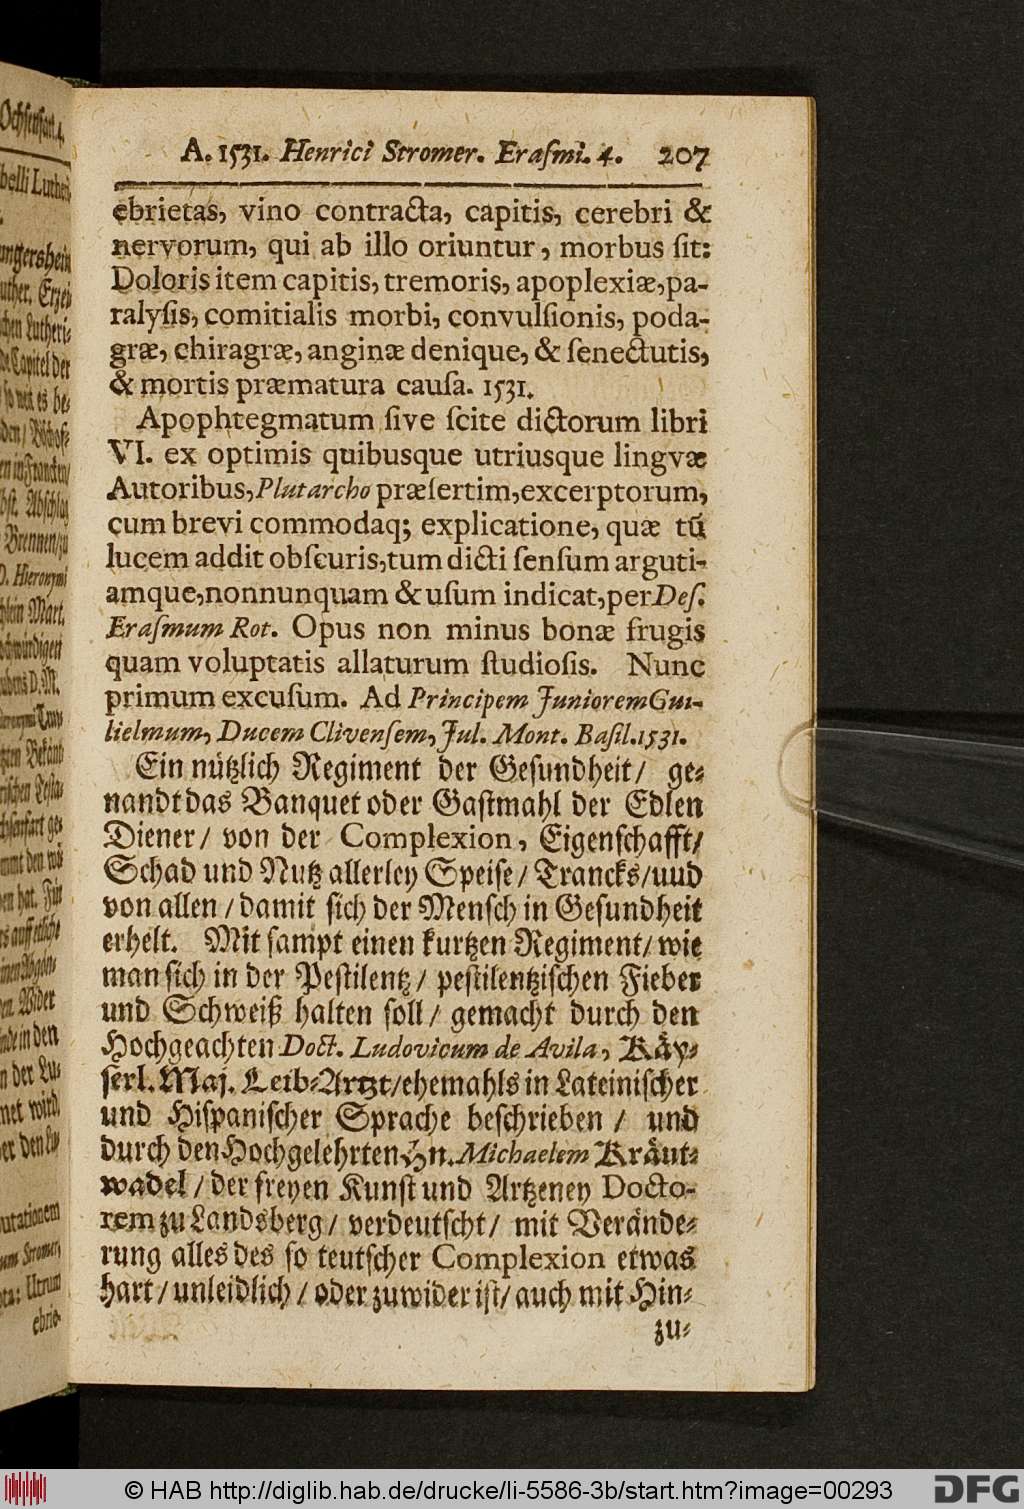 A. 1531. Henrici Stromer. Eraſmi. 4. 207
ebrietas, vino contracta, capitis, cerebri &
nervorum, qui ab illo oriuntur, morbus ſit:
Doloris item capitis, tremoris, apoplexiæ, pa-
ralyſis, comitialis morbi, convulſionis, poda-
græ, chiragræ, anginæ denique, & ſenectutis,
& mortis præmatura cauſa. 1531.
Apophtegmatum ſive ſcite dictorum libri
VI. ex optimis quibusque utriusque lingvæ
Autoribus, Plutarcho præſertim, excerptorum,
cum brevi commodaq; explicatione, quæ tū
lucem addit obſcuris, tum dicti ſenſum arguti-
amque, nonnunquam & uſum indicat, per Deſ.
Eraſmum Rot. Opus non minus bonæ frugis
quam voluptatis allaturum ſtudioſis. Nunc
primum excuſum. Ad Principem Juniorem Gui-
lielmum, Ducem Clivenſem, Jul. Mont. Baſil. 1531.
Ein nützlich Regiment der Geſundheit/ ge-
nandt das Banquet oder Gaſtmahl der Edlen
Diener/ von der Complexion, Eigenſchafft/
Schad und Nutz allerley Speiſe/ Trancks/ uud
von allen/ damit ſich der Menſch in Geſundheit
erhelt. Mit ſampt einen kurtzen Regiment/ wie
man ſich in der Peſtilentz/ peſtilentziſchen Fieber
und Schweiß halten ſoll/ gemacht durch den
Hochgeachten Doct. Ludovicum de Avila, Käy-
ſerl. Maj. Leib-Artzt/ ehemahls in Lateiniſcher
und Hiſpaniſcher Sprache beſchrieben/ und
durch den Hochgelehrten Hn. Michaelem Kräut-
wadel/ der freyen Kunſt und Artzeney Docto-
rem zu Landsberg/ verdeutſcht/ mit Verände-
rung alles des ſo teutſcher Complexion etwas
hart/ unleidlich/ oder zuwider iſt/ auch mit Hin-
zu-
© HAB http://diglib.hab.de/drucke/li-5586-3b/start.htm?image=00293
DFG